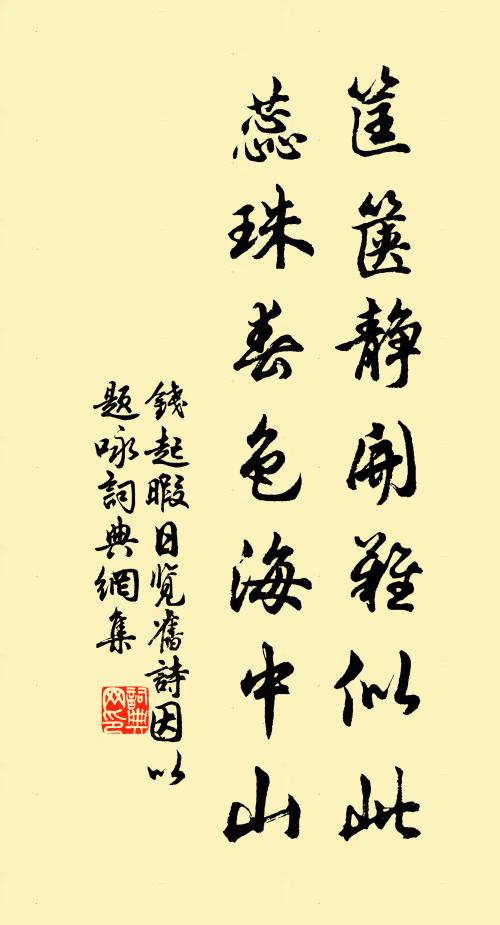 筐篋静開難似此
蕊珠春色海中山
錢起暇日覽舊詩因以
題咏詞典網集
詞典网印